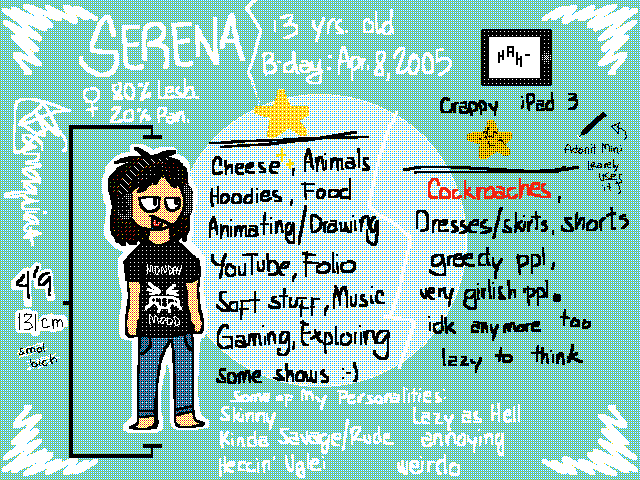 SERENA
13 yrs. old
B-day: Apr. 8, 2005
80% Lesb.
20% Pan.
HAH-
Crappy iPad 3
Adonit Mini
(rarely
uses
it)
Cheese, Animals
Hoodies, Food
Animating/Drawing
YouTube, Folio
Soft stuff, Music
Gaming, Exploring
some shows :-)
Cockroaches,
Dresses/skirts, shorts
greedy ppl,
very girlish ppl.
idk anymore too
lazy to think
4'9
131 cm
smol
MONDAY
MOOD
Some of My Personalities:
Skinny
Kinda Savage/Rude
Heccin' Uglei
Lazy as Hell
annoying
weirdo